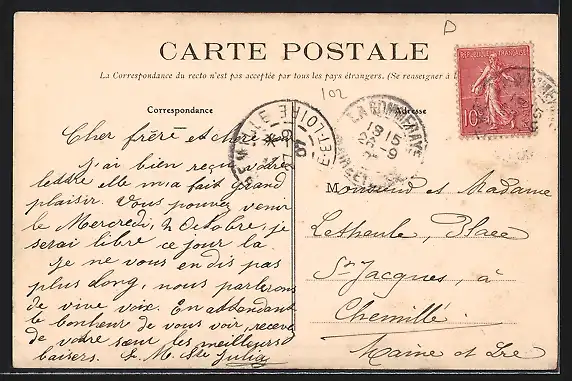 D
CARTE POSTALE
La Correspondance du recto n'est pas acceptée par tous les pays étrangers. (Se renseigner à l
RÉPUBLIQUE FRANÇAISE
10
102
Correspondance
Adresse
18 15
26 -9
27 -9
07
ET-LOIRE
Cher frère et
J'ai bien reçu votre
lettre elle m'a fait grand
plaisir. Vous pouvez venir
le Mercredi, 2 Octobre, je
serai libre ce jour là.
Je ne vous en dis pas
plus long, nous parlerons
de vive voix. En attendant
le bonheur de vous voir, recevez
de votre sœur les meilleurs
baisers. Sr M. Julia
Monsieur et Madame
Letheule, Place
St Jacques, à
Chemillé.
Maine et Lre